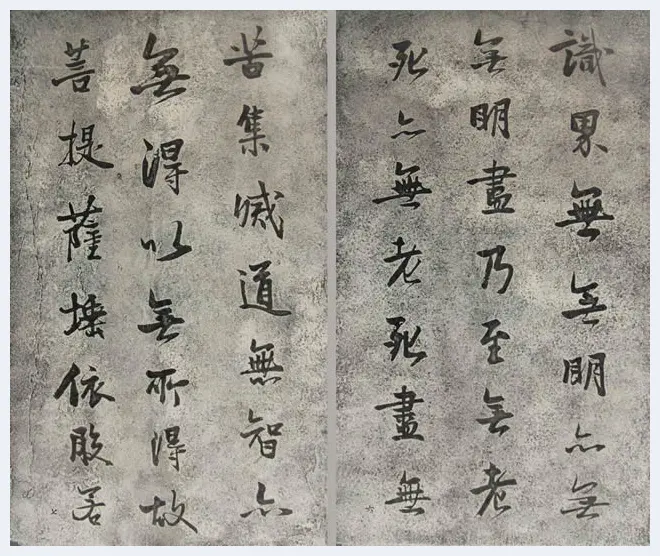 識界無無明亦無
無明盡乃至無老
死亦無老死盡無
苦集滅道無智亦
無得以無所得故
菩提薩埵依般若